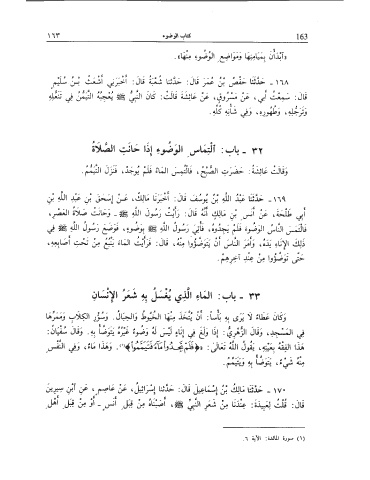 163 كتاب الوضوء ١٦٣
«ابْدَأْنَ بِمَيَامِنِهَا وَمَوَاضِعِ الْوُضُوءِ مِنْهَا».
١٦٨ - حَدَّثَنَا حَفْصُ بْنُ عُمَرَ قَالَ: حَدَّثَنَا شُعْبَةُ قَالَ: أَخْبَرَنِي أَشْعَثُ بْنُ سُلَيْمٍ
قَالَ: سَمِعْتُ أَبِي، عَنْ مَسْرُوقٍ، عَنْ عَائِشَةَ قَالَتْ: كَانَ النَّبِيُّ ﷺ يُعْجِبُهُ التَّيَمُّنُ فِي تَنَعُّلِهِ
وَتَرَجُّلِهِ، وَطُهُورِهِ، وَفِي شَأْنِهِ كُلِّهِ.
٣٢ - باب: الْتِمَاسِ الْوَضُوءِ إِذَا حَانَتِ الصَّلَاةُ
وَقَالَتْ عَائِشَةُ: حَضَرَتِ الصُّبْحُ، فَالْتُمِسَ الْمَاءُ فَلَمْ يُوجَدْ، فَنَزَلَ التَّيَمُّمُ.
١٦٩ - حَدَّثَنَا عَبْدُ اللَّهِ بْنُ يُوسُفَ قَالَ: أَخْبَرَنَا مَالِكٌ، عَنْ إِسْحَقَ بْنِ عَبْدِ اللَّهِ بْنِ
أَبِي طَلْحَةَ، عَنْ أَنَسِ بْنِ مَالِكٍ أَنَّهُ قَالَ: رَأَيْتُ رَسُولَ اللَّهِ ﷺ - وَحَانَتْ صَلَاةُ الْعَصْرِ،
فَالْتَمَسَ النَّاسُ الْوَضُوءَ فَلَمْ يَجِدُوهُ، فَأُتِيَ رَسُولُ اللَّهِ ﷺ بِوَضُوءٍ، فَوَضَعَ رَسُولُ اللَّهِ ﷺ فِي
ذَلِكَ الْإِنَاءِ يَدَهُ، وَأَمَرَ النَّاسَ أَنْ يَتَوَضَّؤُوا مِنْهُ، قَالَ: فَرَأَيْتُ الْمَاءَ يَنْبُعُ مِنْ تَحْتِ أَصَابِعِهِ،
حَتَّى تَوَضَّؤُوا مِنْ عِنْدِ آخِرِهِمْ.
٣٣ - باب: الْمَاءِ الَّذِي يُغْسَلُ بِهِ شَعَرُ الْإِنْسَانِ
وَكَانَ عَطَاءٌ لَا يَرَى بِهِ بَأْسًا: أَنْ يُتَّخَذَ مِنْهَا الْخُيُوطُ وَالْحِبَالُ. وَسُؤْرِ الْكِلَابِ وَمَمَرِّهَا
فِي الْمَسْجِدِ، وَقَالَ الزُّهْرِيُّ: إِذَا وَلَغَ فِي إِنَاءٍ لَيْسَ لَهُ وَضُوءٌ غَيْرُهُ يَتَوَضَّأُ بِهِ. وَقَالَ سُفْيَانُ:
هَذَا الْفِقْهُ بِعَيْنِهِ، يَقُولُ اللَّهُ تَعَالَى: ﴿فَلَمْ تَجِدُوا مَاءً فَتَيَمَّمُوا﴾(١). وَهَذَا مَاءٌ، وَفِي النَّفْسِ
مِنْهُ شَيْءٌ، يَتَوَضَّأُ بِهِ وَيَتَيَمَّمُ.
١٧٠ - حَدَّثَنَا مَالِكُ بْنُ إِسْمَاعِيلَ قَالَ: حَدَّثَنَا إِسْرَائِيلُ، عَنْ عَاصِمٍ، عَنِ ابْنِ سِيرِينَ
قَالَ: قُلْتُ لِعَبِيدَةَ: عِنْدَنَا مِنْ شَعَرِ النَّبِيِّ ﷺ، أَصَبْنَاهُ مِنْ قِبَلِ أَنَسٍ - أَوْ مِنْ قِبَلِ أَهْلِ
(١) سورة المائدة: الآية ٦.